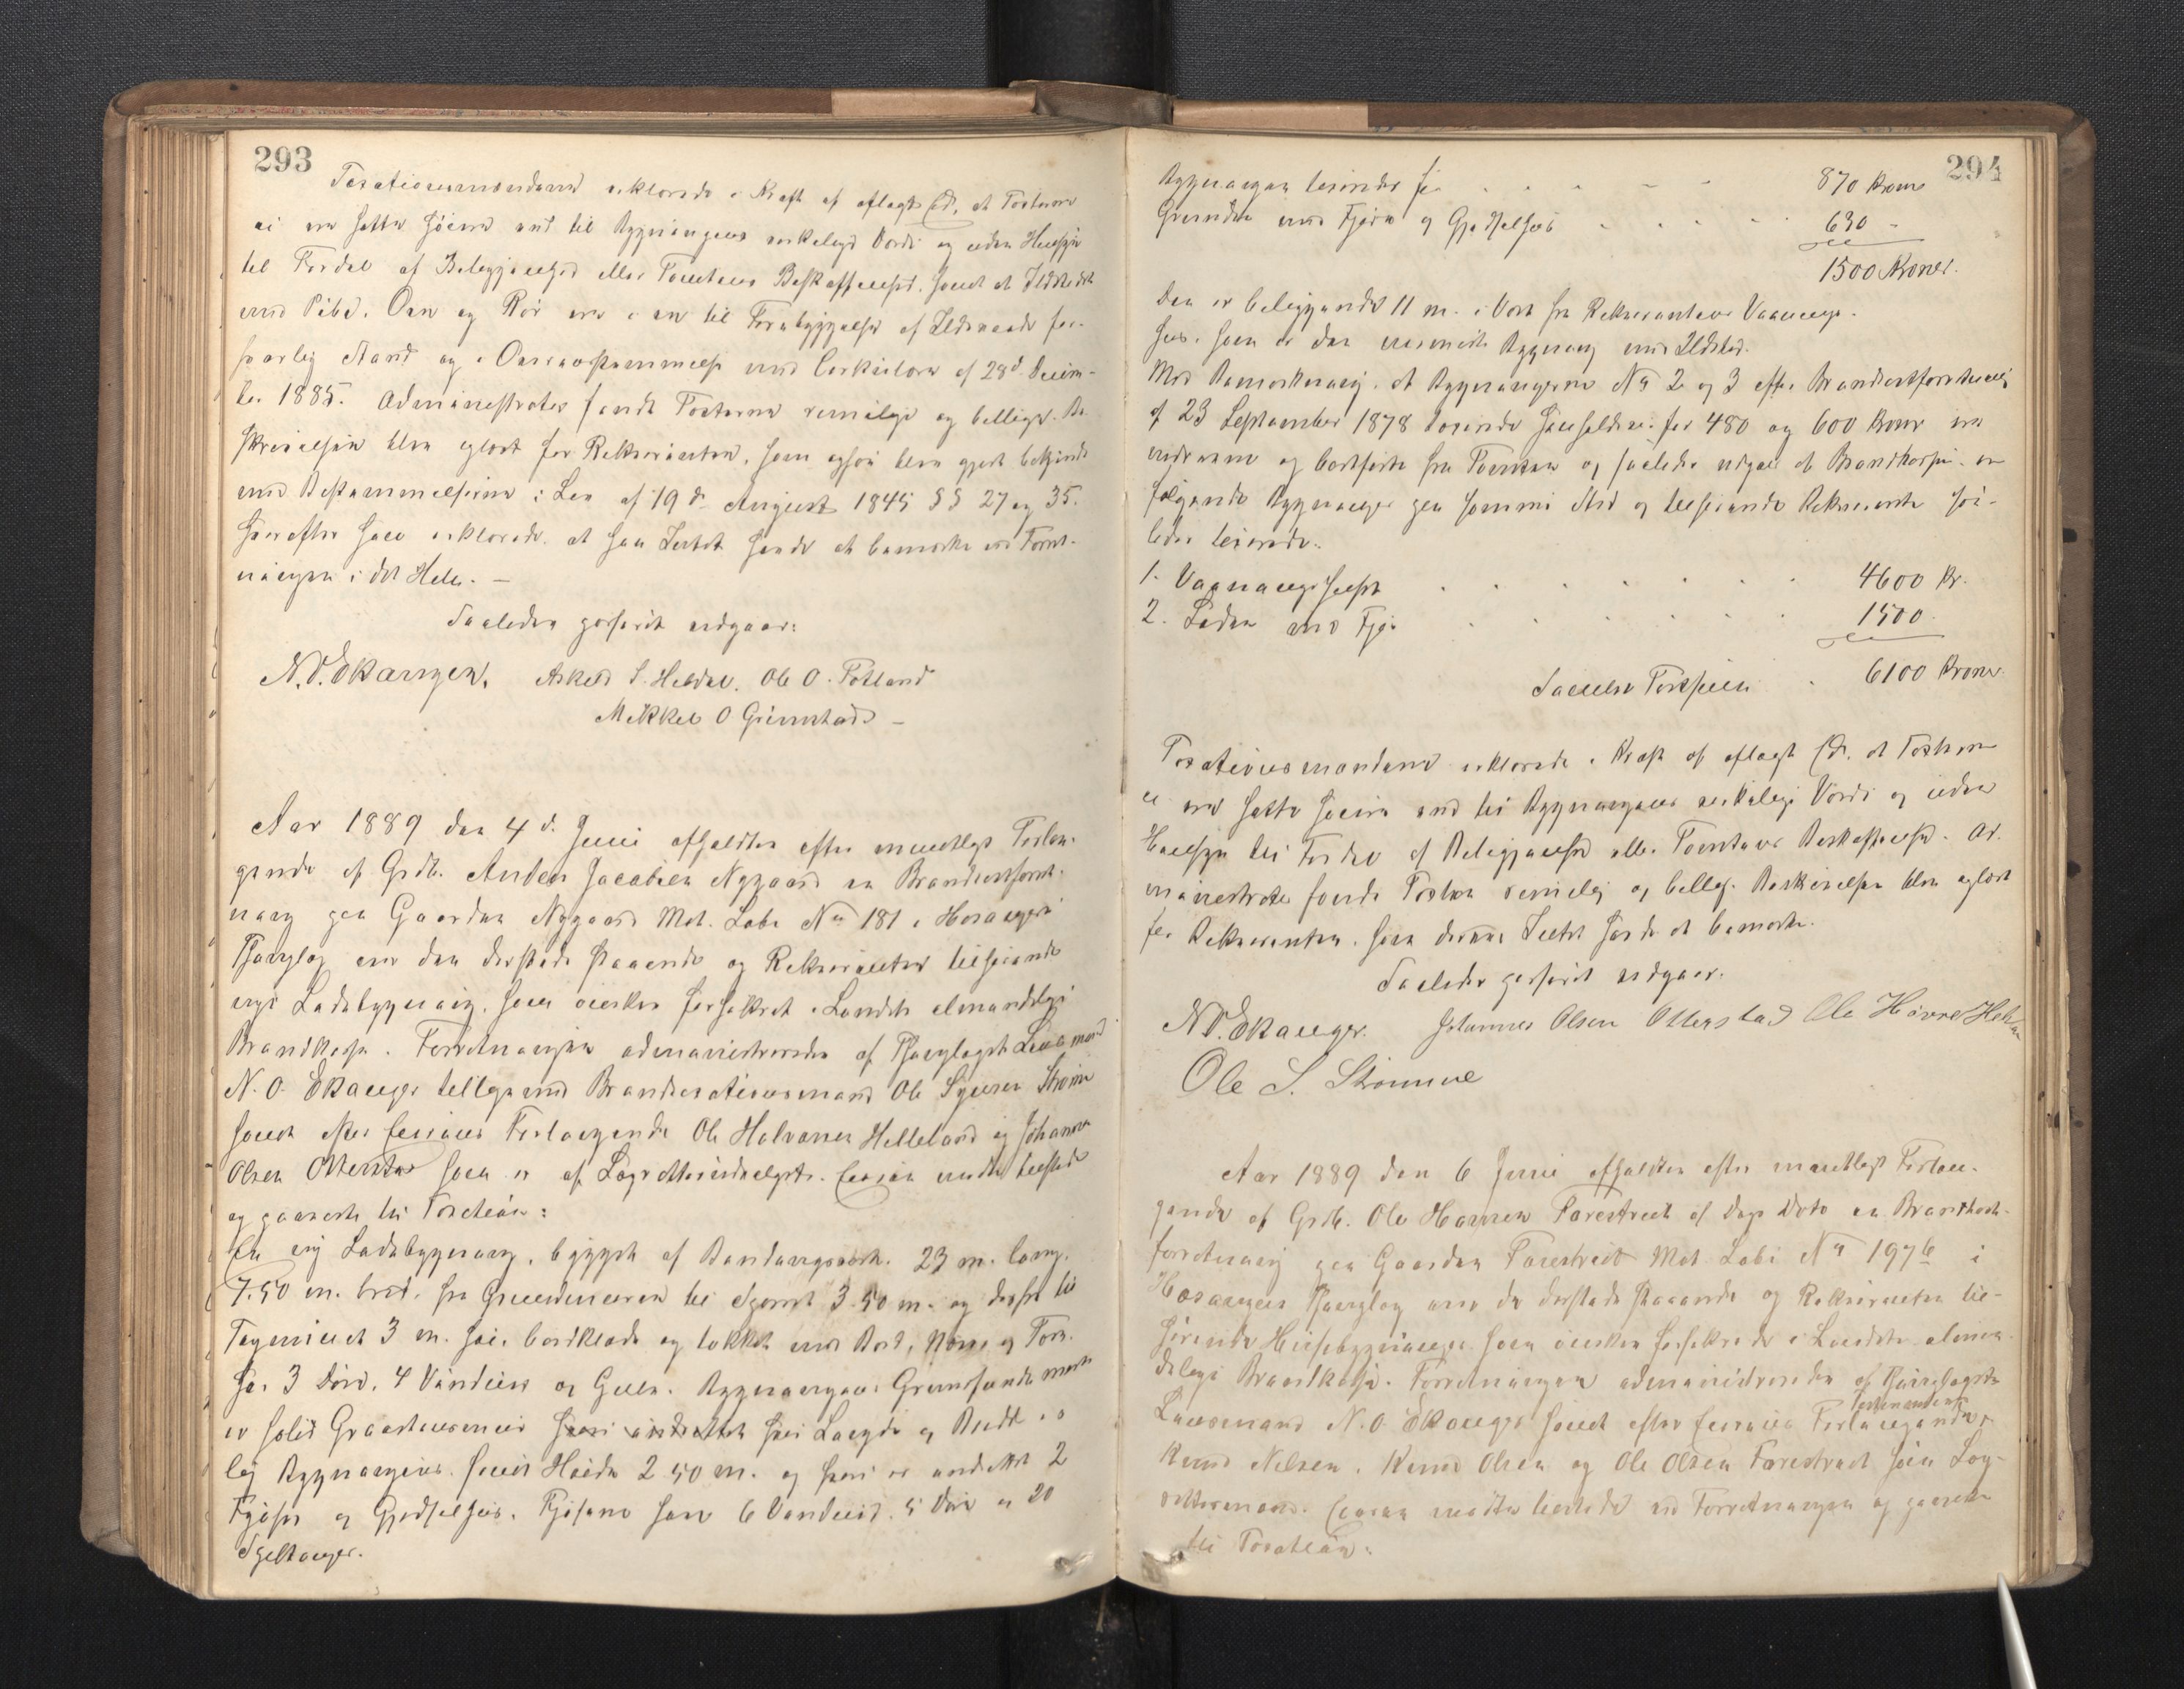 293
Taxationsmændene erklærede i Kraft af aflagt Ed, at Taxterne
ei ere satte høiere end til Bygningens virkelige Værdi og uden Hensyn
til Fordel af Beliggenhed eller Tomtens Beskaffenhed, samt at Ildstedet
med Pibe, Ovn og Rør ere i en til Forebyggelse af Ildsvaade for-
svarlig Stand og i Overensstemmelse med Cirkulære af 28d Decem-
ber 1885. Administrator fandt Taxterne rimelige og billige. Be-
skrivelsen blev oplæst for Rekvirenten, som ogsaa blev gjort bekjendt
med Bestemmelserne i Lov af 19de August 1845 §§ 27 og 35.
Herefter han erklærede at han Intet havde at bemærke ved Forret-
ningen i det Hele. —
Saaledes passeret udgaar:
N. O. Ekanger. Askild S. Heldal. Ole O. Fotland
Mikkel O Grimstad –
Aar 1889 den 4 d. Juni afholdtes efter mundtligt Forlan-
gende af Grdb. Anders Jacobsen Nygaard en Brandtaxtforret-
ning paa Gaarden Nygaard Mat. Løbe No 181 i Hosanger
Thinglag over den dersteds staaende og Rekvirenten tilhørende
nye Ladebygning, som ønskes forsikret i Landets almindelige
Brandkasse. Forretningen administreredes af Thinglagets Lensmand
N. O. Ekanger tilligemed Brandtaxationsmand Ole
samt efter Forlangende Ole Halvorsen Helleland og Johannes
Olsen Otterstad som er af Lagrettesudvalget. mødte tilstede
og gaves til Taxation:
En ny Ladebygning, bygget af Bindingsværk. 23 m. lang,
7.50 m. bred, fra Grundmuren til 3.50 m. og derfra til
3 m. høi, bordklædt og tækket med Bord, Næver og Torv.
Har 3 Døre, 4 Vinduer og Gulv. Bygningens Grundfundament
er solid Graastensmuur Længde og Bredde
lig Bygningens. samt Høide 2.50 m. og heri er indrettet 2
Fjøse og Gjødselhus. Fjøsene have 6 Vinduer, 5 Døre og 20
294
Bygningen taxeredes for . . . . . 870 Kroner
Grunden med Fjøse og Gjødselhus . . . . 630 –
1500 Kroner.
Den er beliggende 11 m. i Vest fra Rekvirentens Vaanings-
hus, som er den nærmeste Bygning med Ildsted.
Med Bemærkning, at Bygningerne No 2 og 3 efter Brandtaxtforretning
af 23 September 1878 taxerede henholdsvis for 480 og 600 Kroner ere
nedrevne og bortførte fra Tomten og saaledes udgaar af Brandkassen. er
følgende Bygninger paa samme Sted og tilhørende Rekvirenten saa-
ledes taxerede:
1. Vaaningshuset . . . . . . . 4600 Kr.
2. Laden med Fjøs . . . . . . 1500.
Samlet Taxtsum . 6100 Kroner.
Taxationsmændene erklærede i Kraft af aflagt Ed, at Taxterne
ei ere satte høiere end til Bygningens virkelige Værdi og uden
Hensyn til Fordel af Beliggenhed eller Tomtens Beskaffenhed. Ad-
ministrator fandt Taxten rimelig og billig. Beskrivelsen blev oplæst
for Rekvirenten, som derved Intet havde at bemærke.
Saaledes passeret udgaar.
N O. Ekanger. Johannes Olsen Otterstad Ole
Ole S. Strømme
Aar 1889 den 6 Juni afholdtes efter mundtligt Forlan-
gende af Grdb. Ole Hansen Farestveit af Dags Dato en Brandtaxt-
forretning paa Gaarden Farestveit Mat Løbe No 197b i
Hosanger Thinglag over de dersteds staaende og Rekvirenten til-
hørende Husebygninger som ønskes forsikrede i Landets almin-
delige Brandkasse. Forretningen administreredes af Thinglagets
Lensmand N. O. Ekanger samt efter Forlangende
Knud Nilsen, Knud Olsen og Ole Olsen Farestveit som Lag-
rettesmænd. mødte tilstede ved Forretningen og gaves
til Taxation: